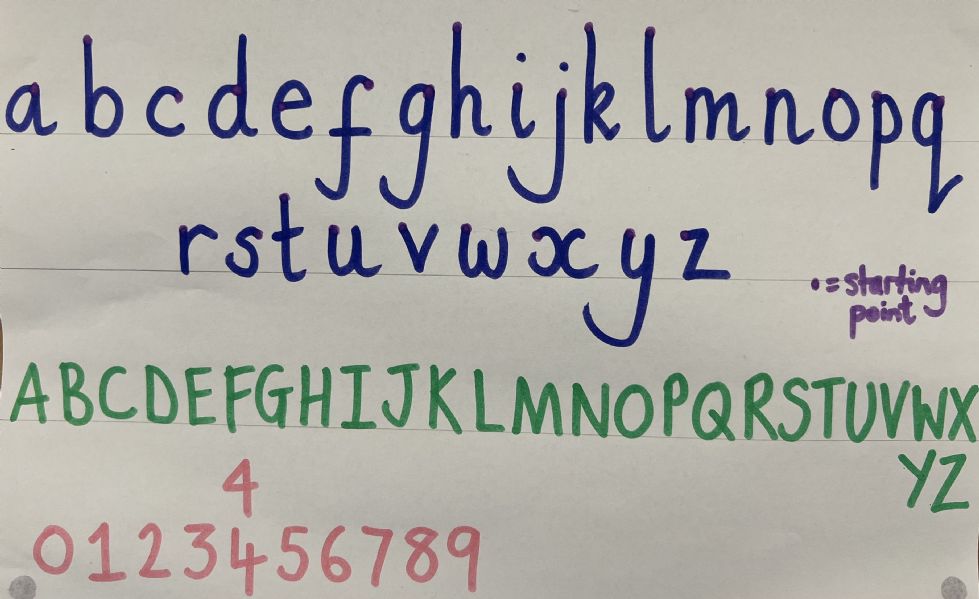 abcdefghijklmnopq
rstuvwxyz
•=starting
point
ABCDEFGHIJKLMNOPQRSTUVWX
YZ
4
0123456789